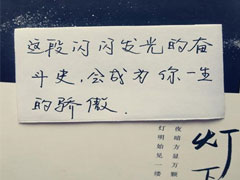 这段闪闪发光的奋
斗史，会成为你一生
的骄傲.
灯下
夜晴方显万颗
灯明始见一缕